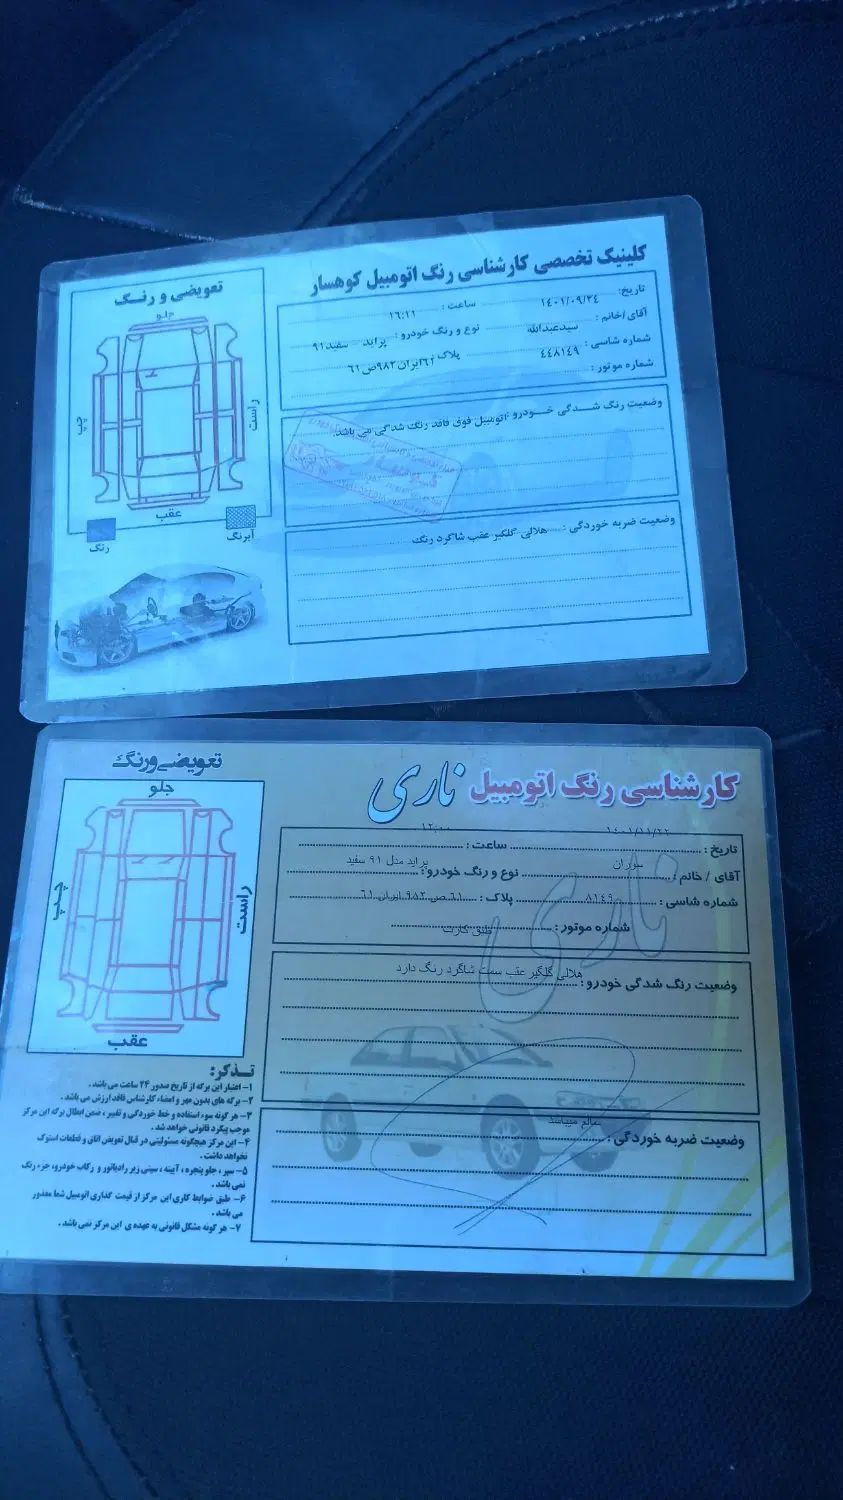 کلینیک تخصصی کارشناسی رنگ اتومبیل کوهسار
تاریخ: ۱۴۰۱/۰۹/۲۴ ساعت: ۱۶:۱۱
آقای/خانم: سیدعبدالله نوع و رنگ خودرو: پراید سفید ۹۱
شماره شاسی: ۴۴۸۱۴۹ پلاک: ۶۱ایران۹۸۲ص۶۱
شماره موتور:
وضعیت رنگ شدگی خودرو: اتومبیل فوق فاقد رنگ شدگی می باشد.
وضعیت ضربه خوردگی: هلالی گلگیر عقب شاگرد رنگ
تعویضی و رنگ
جلو
چپ
راست
عقب
رنگ
آبرنگ
کارشناسی رنگ اتومبیل ناری
تاریخ: ۱۴۰۱/۱۱/۲۲ ساعت: ۱۲:۰۰
آقای / خانم: سوران نوع و رنگ خودرو: پراید مدل ۹۱ سفید
شماره شاسی: ۸۱۴۹ پلاک: ۶۱ ص ۹۸۲ ایران ۶۱
شماره موتور: طبق کارت
وضعیت رنگ شدگی خودرو: هلالی گلگیر عقب سمت شاگرد رنگ دارد
وضعیت ضربه خوردگی: سالم میباشد
ناری
تعویضی ورنگ
جلو
چپ
راست
عقب
تذکر:
۱- اعتبار این برگه از تاریخ صدور ۲۴ ساعت می باشد.
۲- برگه های بدون مهر و امضاء کارشناس فاقد ارزش می باشد.
۳- هر گونه سوء استفاده و خط خوردگی و تغییر، ضمن ابطال برگه این مرکز
موجب پیگرد قانونی خواهد شد.
۴- این مرکز هیچگونه مسئولیتی در قبال تعویض اتاق و قطعات استوک
نخواهد داشت.
۵- سپر، جلو پنجره، آیینه، سینی زیر رادیاتور و رکاب خودرو، جزء رنگ
نمی باشد.
۶- طبق ضوابط کاری این مرکز از قیمت گذاری اتومبیل شما معذور
می باشد.
۷- هر گونه مشکل قانونی به عهده ی این مرکز نمی باشد.